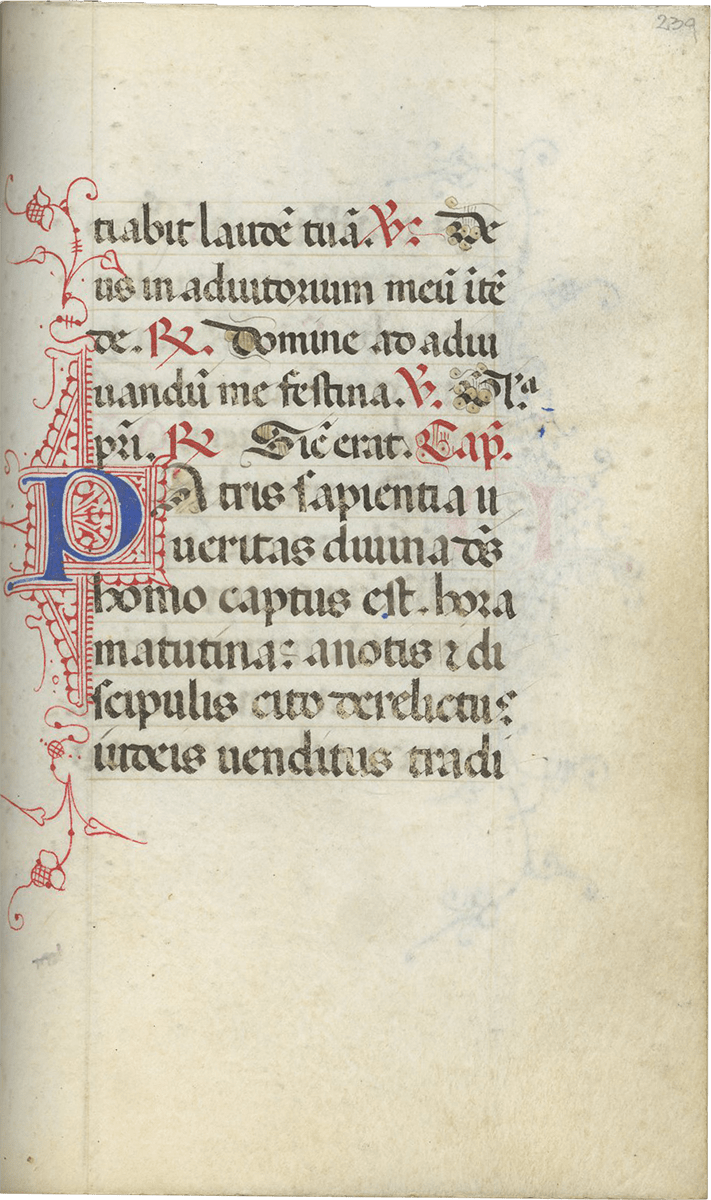 239
tiabit laudē tuā. ℣: De
us in adiutorium meū ītē
de. ℟. Domine ad adiu
uandū me festina. ℣. Gl'a
pr̄i. ℟ Sic̄ erat. Cap̄.
PAtris sapientia u
ueritas diuina ds̄
homo captus est. hora
matutina: anotis ⁊ di
scipulis cito derelictus
iudeis uenditus tradi